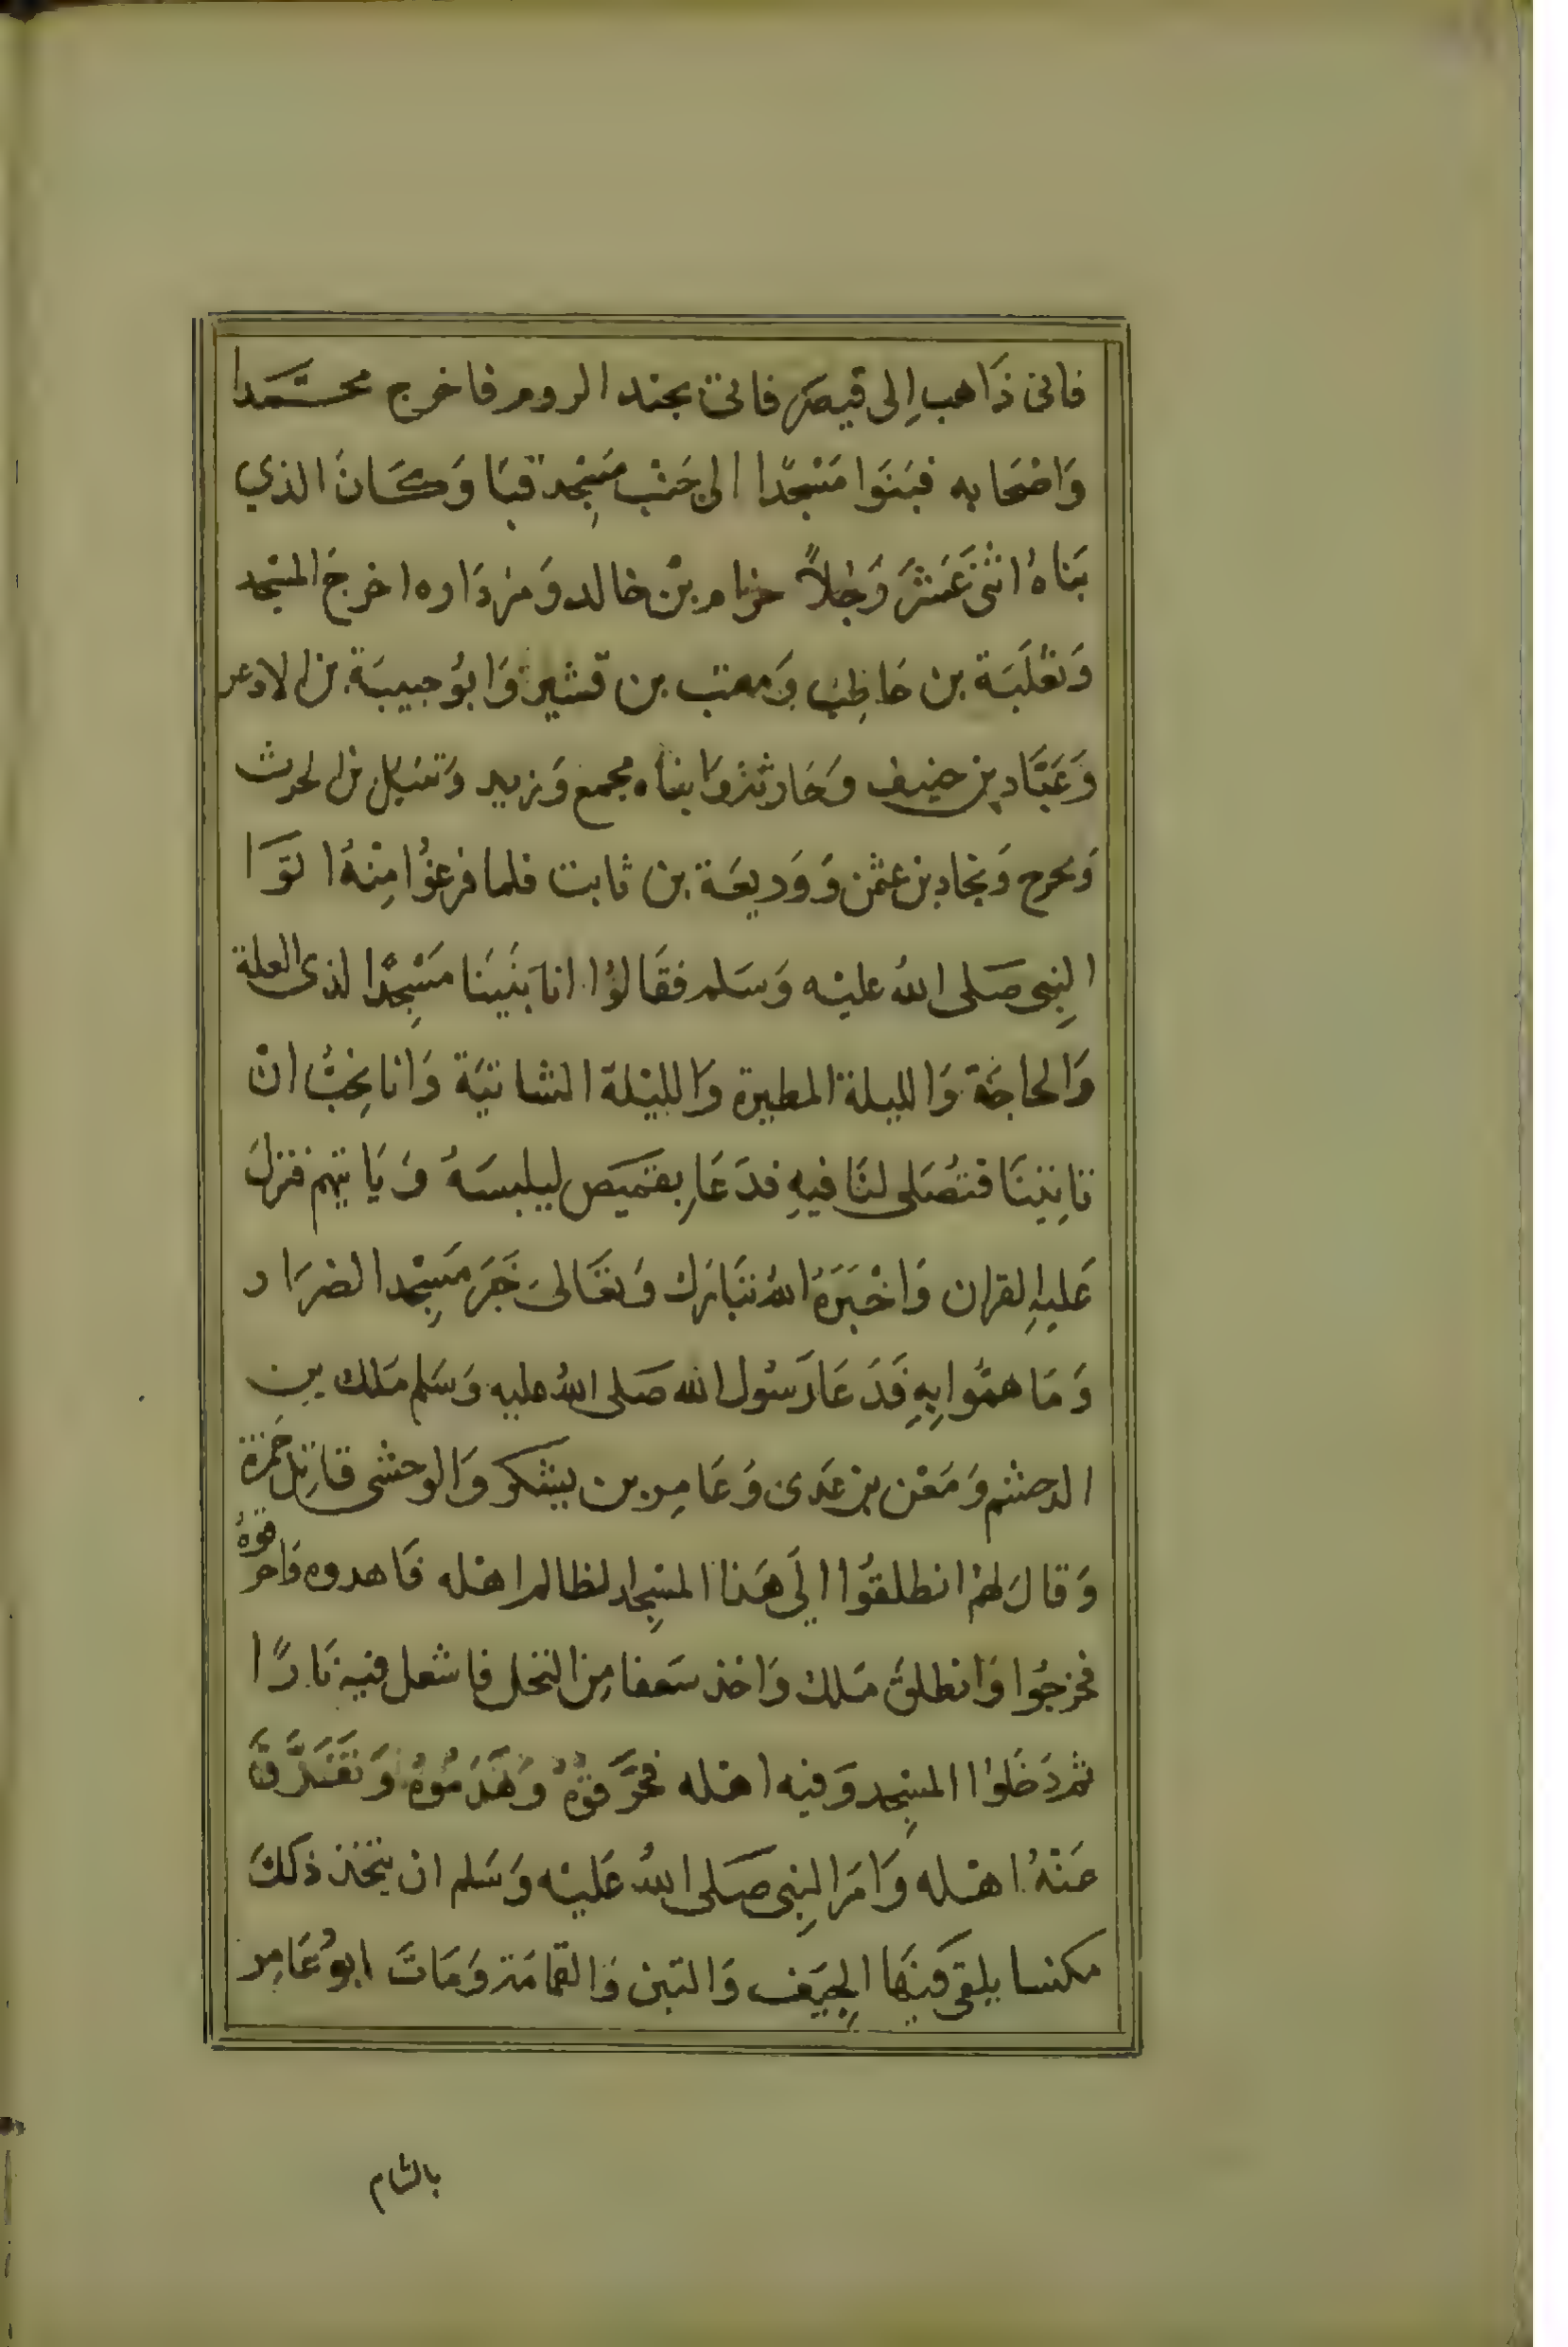 فانى ذَاهب اِلى قيصَر فاتى بجند الروم فاخرج محَمَّدا
وَاصْحَابه فبَنَوا مَسْجدًا الى جَنْب مَسِجد قبَا وَكَانَ الذي
بَناهُ اثنى عَشَرَ رَجُلاً خزام بْن خالد وَمن دَاره اخرجَ المسْجد
وَثعْلَبَة بن حَاطِب وَمعتب بن قشير وَابوُ حبيبَة بن الادعر
وَعَبَّاد بِن حنيف وَحَارثة وَابناه مجمع وَزيد وَنبتل بن الحرث
وَبحرج وَبجاد بن عثمن وَوَديعَة بن ثابت فلما فرغوُا مِنْهُ اتوَا
النِبى صَلى اللهُ عليْه وَسَلم فقَالوُا انا بَنَينَا مَسْجِدًا لذى العلة
وَالحاجَة وَالليلة المطيرة وَالليْلة الشاتيَة وَانا نحِبُّ انْ
تاتِيَنَا فتُصَلى لنَا فيهِ فدَعَا بِقَميَص ليلبسَهُ وَيَاتيهم فنزلَ
عَليهِ القران وَاخْبَرَهُ اللهُ تبَارَك وَتعَالىَ خَبَر مَسِجْد الضرَار
وَمَا همُّوا بِهِ فَدَعَا رَسُول الله صَلى اللهُ عليه وَسَلم مَلك بن
الدحشم وَمَعْن بن عَدى وَعَامِر بن يشكر وَالوحشى قاتِل حَمزة
وَقالَ لهمْ انطلقوُا اِلَى هَذا المسْجِد الظالم اهْله فَاهدموه وَاحرقوهُ
فخرجُوا وَانطلقَ مَلك وَاخذ سَعفا مِن النخل فاشعل فيه نَارًا
ثم دَخَلوُا المسْجِد وَفيه اهْله فحَرَّقوُهُ وَهَدَمُوهُ وَتَفَرَّقَ
عَنْهُ اهْله وَامَرَ النِبى صَلى اللهُ عَليْه وَسَلم ان يتخذ ذلكَ
مكنسا يلقى فيَهَا الجِيَف وَالتبن وَالقمامَة وَمَاتَ ابوُ عَامِر
بالشام